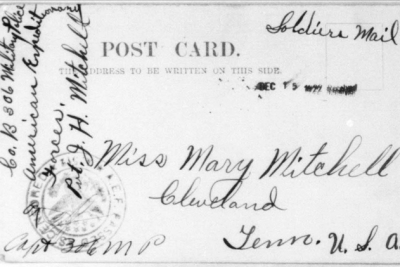 Soldiers Mail
POST CARD.
THE ADDRESS TO BE WRITTEN ON THIS SIDE.
DEC 15
Miss Mary Mitchell
Cleveland
Tenn. U.S.A.
Pvt. J. H. Mitchell
Co. B 306 Military Police
American Expeditionary
Forces.
A.E.F.
Capt 306 M P